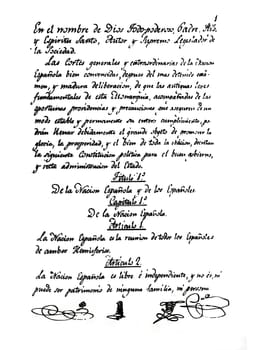 1
En el nombre de Dios Todopoderoso, Padre, Hijo,
y Espiritu Santo, Autor y Supremo Legislador de
la Sociedad.
Las Cortes generales y extraordinarias de la Nacion
Española bien convencidas, despues del mas detenido exâ-
men, y madura deliberacion, de que las antiguas leyes
fundamentales de esta Monarquia, acompañadas de las
oportunas providencias y precauciones que aseguren de un
modo estable y permanente su entero cumplimiento, po-
drán llenar debidamente el grande objeto de promover la
gloria, la prosperidad, y el bien de toda la Nacion, decretan
la siguiente Constitucion politica para el buen gobierno,
y recta administracion del Estado.
Titulo 1.º
De la Nacion Española y de los Españoles
Capitulo 1.º
De la Nacion Española.
Articulo 1.
La Nacion Española es la reunion de todos los Españoles
de ambos Hemisferios.
Articulo 2.
La Nacion Española es libre é independiente, y no es, ni
puede ser patrimonio de ninguna familia, ni persona.